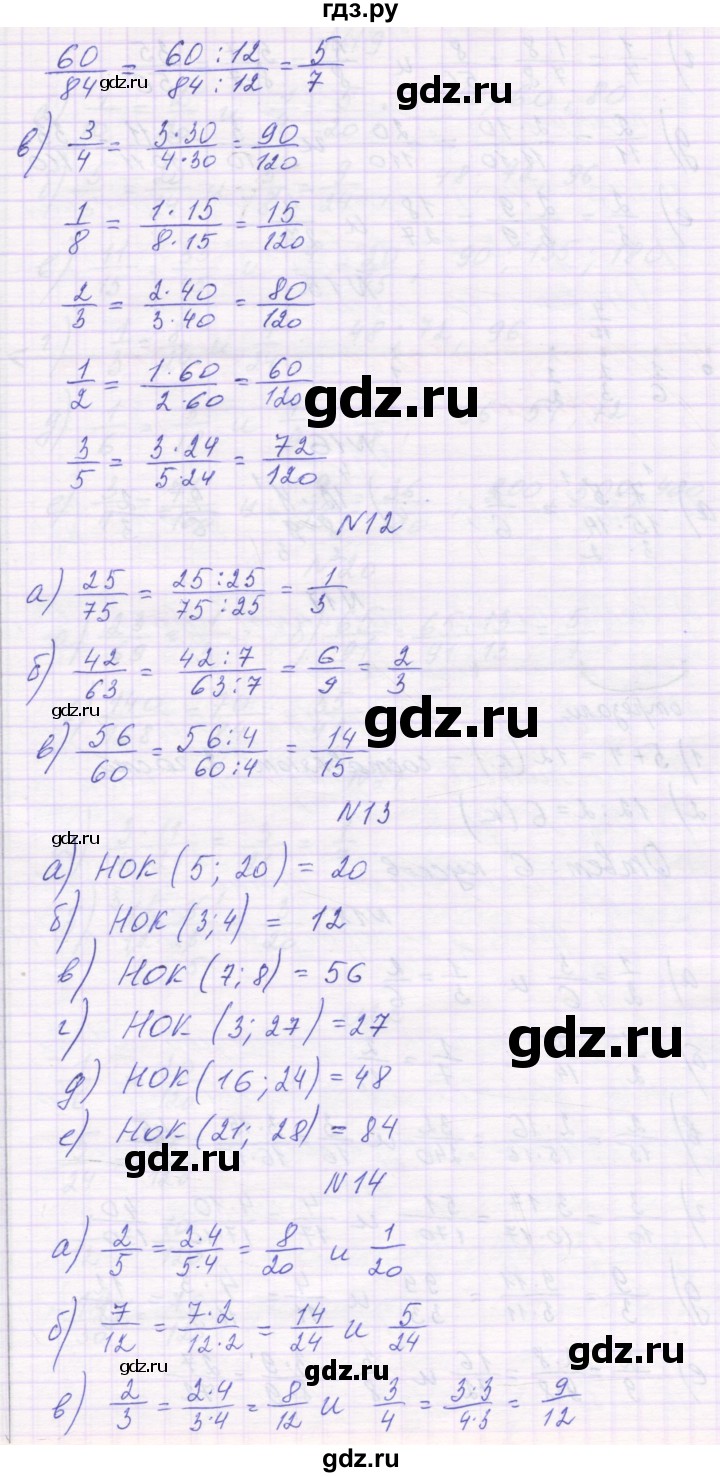 гдз.ру
60/84 = 60:12/84:12 = 5/7
gdz.ru
gdz.ru
в) 3/4 = 3·30/4·30 = 90/120
1/8 = 1·15/8·15 = 15/120
2/3 = 2·40/3·40 = 80/120
1/2 = 1·60/2·60 = 60/120
gdz.ru
3/5 = 3·24/5·24 = 72/120
N12
а) 25/75 = 25:25/75:25 = 1/3
б) 42/63 = 42:7/63:7 = 6/9 = 2/3
gdz.ru
в) 56/60 = 56:4/60:4 = 14/15
N13
gdz.ru
а) НОК (5; 20) = 20
б) НОК (3;4) = 12
в) НОК (7; 8) = 56
г) НОК (3; 27) = 27
gdz.ru
д) НОК (16; 24) = 48
е) НОК (21; 28) = 84
gdz.ru
N14
а) 2/5 = 2·4/5·4 = 8/20 и 1/20
б) 7/12 = 7·2/12·2 = 14/24 и 5/24
gdz.ru
gdz.ru
gdz.ru
в) 2/3 = 2·4/3·4 = 8/12 и 3/4 = 3·3/4·3 = 9/12
gdz.ru